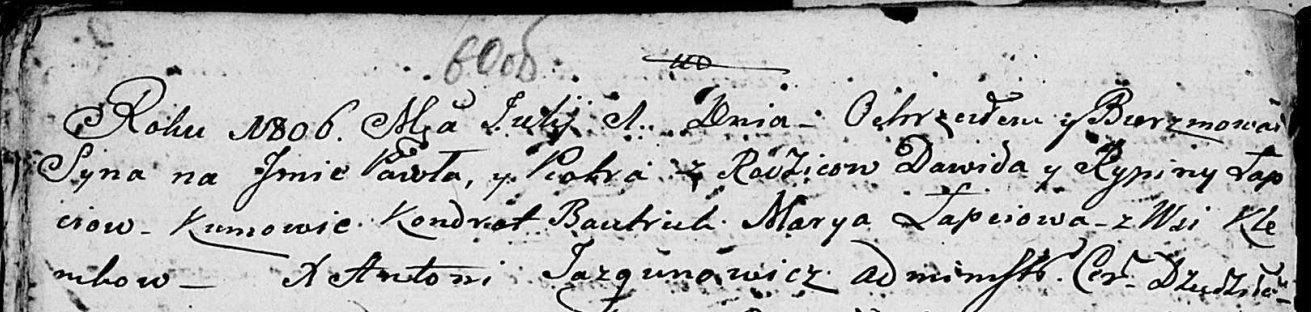 600б
40
Roku 1806. Mca Julij 1. Dnia - Ochrzciłem y Bierzmował
Syna na Jmie Pawła, y Piotra z Rodzicow Dawida y Rypiny Łap
ciow - Kumowie Kondrat Bautruk Marya Łapciowa - z Wsi Kle
nikow - X Antoni Jazgunowicz administr. Cer.